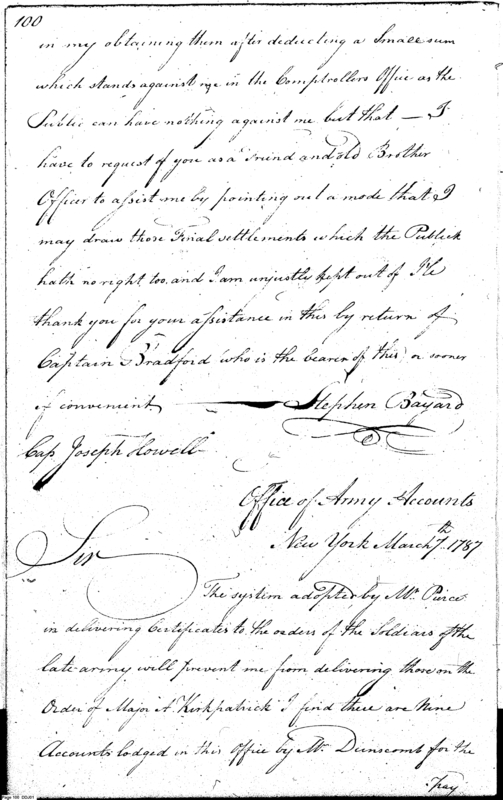 100
in my obtaining them after deducting a Small sum
which stands against me in the Comptrollers Office as the
Public can have nothing against me but that — I
have to request of you as a Friend and old Brother
Officer to assist me by pointing out a mode that I
may draw those Final settlements which the Publick
hath no right too. and I am unjustly kept out of I'le
thank you for your assistance in this by return of
Captain Bradford who is the bearer of this, or sooner
if convenient
Stephen Bayard
Cap Joseph Howell
Office of Army Accounts
New York March 7th 1787
Sir
The system adopted by Mr. Pierce
in delivering Certificates to the orders of the Soldiers of the
late army will prevent me from delivering those on the
Order of Major A. Kirkpatrick I find there are Nine
Accounts lodged in this Office by Mr Dunscomb for the
Pay
Page 100 DDJ01